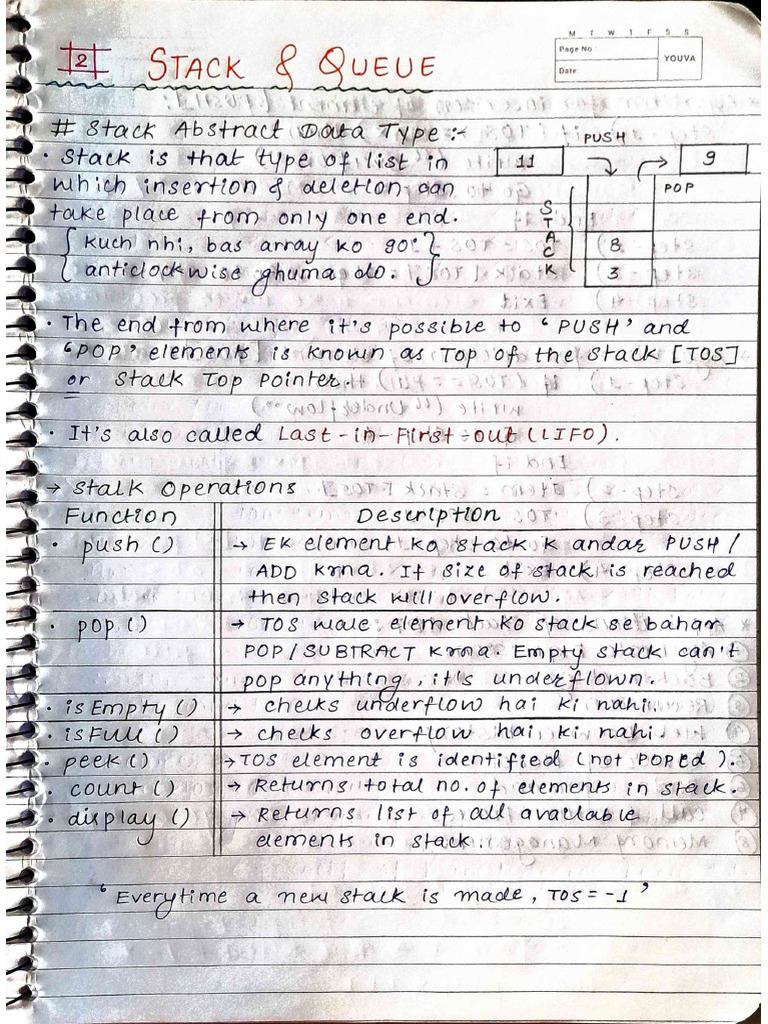 M T W T F S S
Page No
Date
YOUVA
2 STACK & QUEUE
# Stack Abstract Data Type :-
· Stack is that type of list in
which insertion & deletion can
take place from only one end.
{ kuch nhi, bas array ko 90° }
{ anticlockwise ghuma do. }
PUSH
11
9
POP
STACK
8
3
· The end from where it's possible to 'PUSH' and
'POP' elements is known as Top of the Stack [TOS]
or Stack Top Pointer.
· It's also called Last-in-First-out (LIFO).
→ Stalk Operations
Function Description
· push () → EK element ko stack k andar PUSH /
ADD krna. If size of stack is reached
then stack will overflow.
· pop () → TOS wale element ko stack se bahar
POP / SUBTRACT krna. Empty stack can't
pop anything, it's underflown.
· isEmpty () → checks underflow hai ki nahi.
· isFull () → checks overflow hai ki nahi.
· peek () → TOS element is identified (not POPed).
· count () → Returns total no. of elements in stack.
· display () → Returns list of all available
elements in stack.
' Everytime a new stack is made, TOS = -1 '